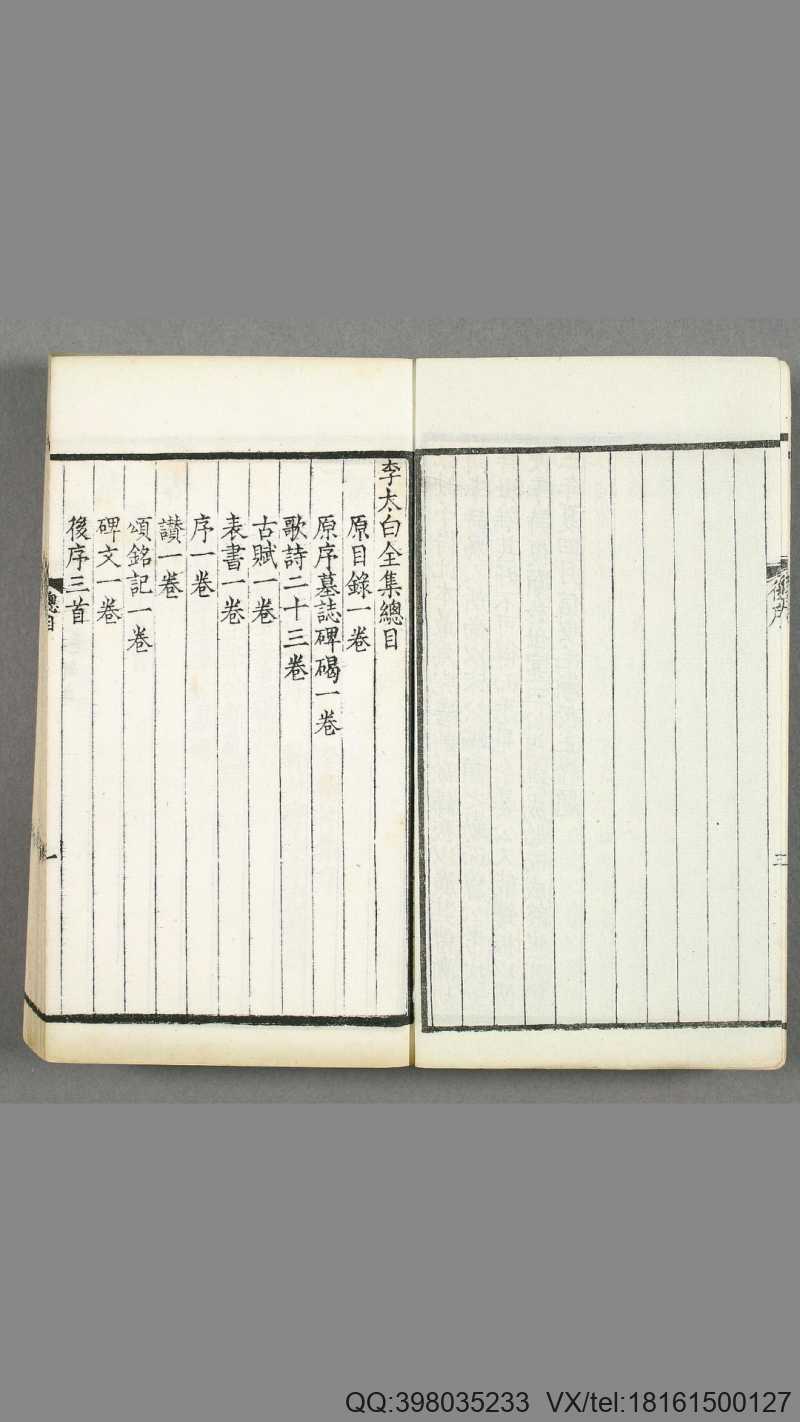 後序
三
李太白全集總目
原目錄一卷
原序墓誌碑碣一卷
歌詩二十三卷
古賦一卷
表書一卷
序一卷
讃一卷
頌銘記一卷
碑文一卷
後序三首
總目
一
QQ:398035233 VX/tel:18161500127